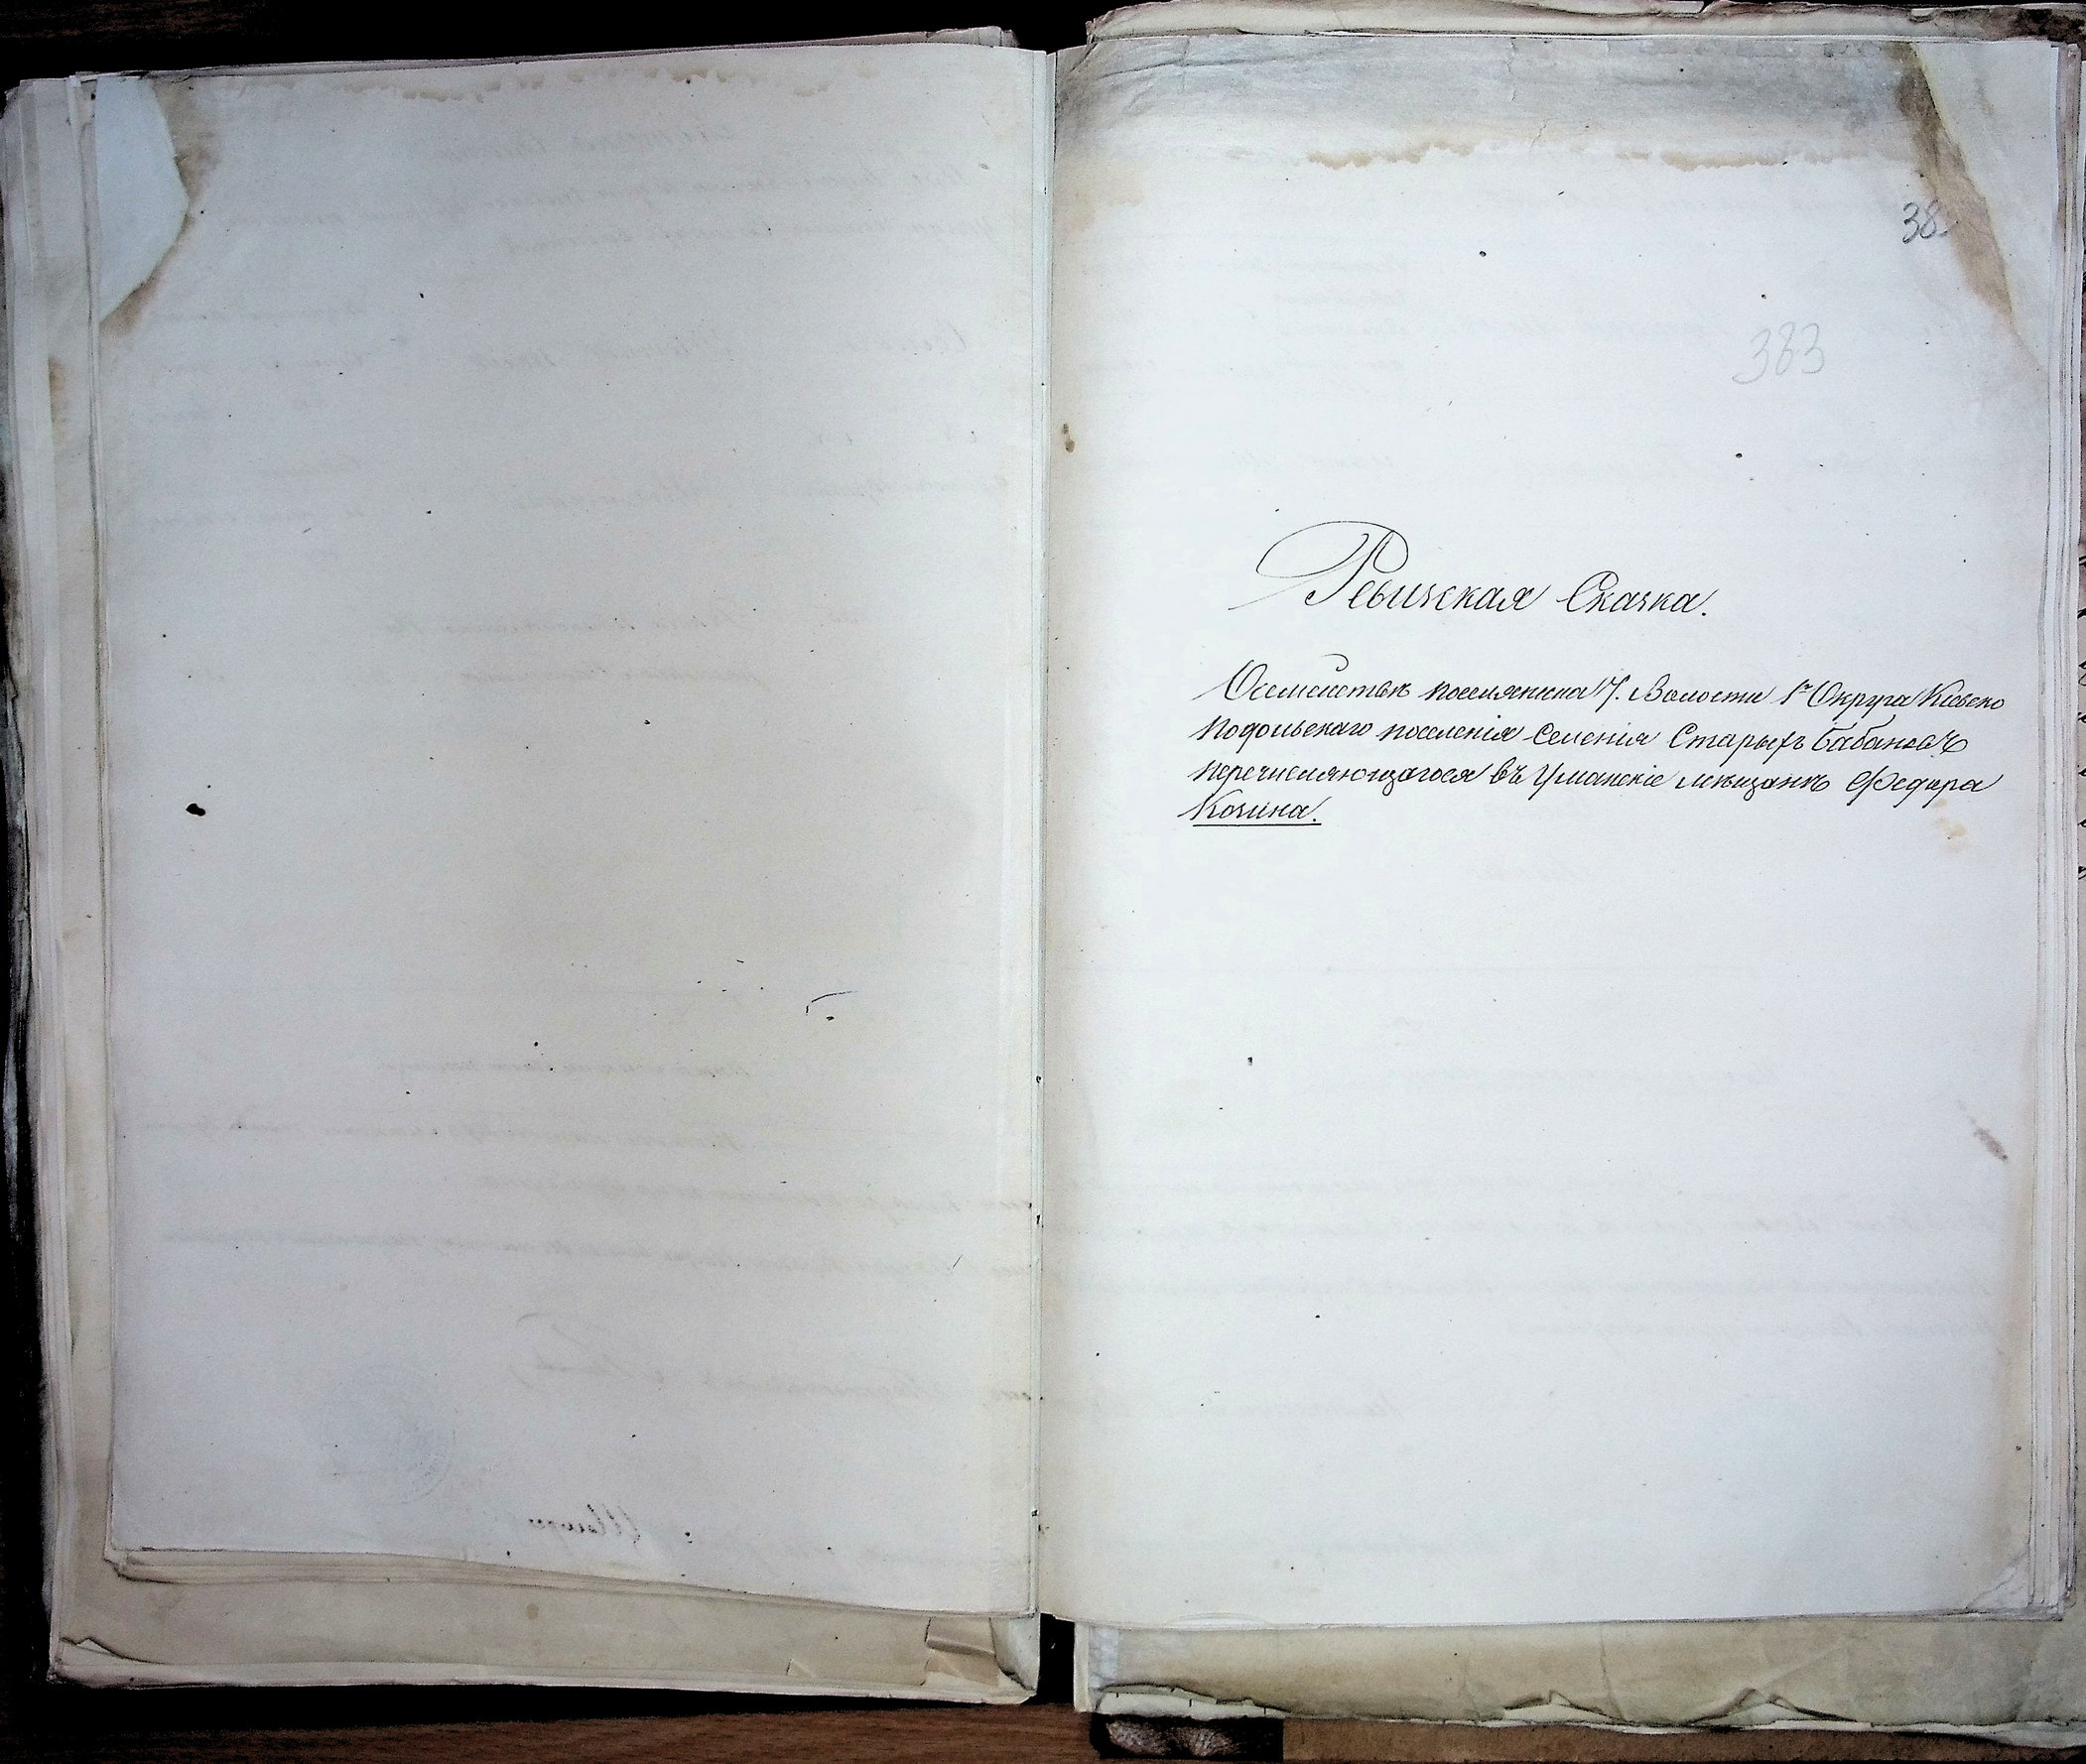 38
383
Ревижская Сказка.
О семействѣ поселянина 17. Волости 1го Округа Киевско
Подольскаго поселенія Селенія Старыхъ Бабановъ
перечисляющагося въ Уманскіе мѣщане Федора
Козина.